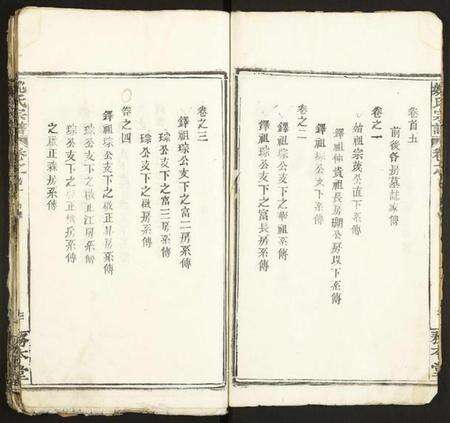 卷首五
前後各房墓誌家傳
卷之一
始祖宗茂公直下系傳
鐸祖仲貴祖長房瑚公房以下系傳
鐸祖琮公支下系傳
卷之二
鐸祖琮公支下之學祖系傳
琮公支下之富長房系傳
卷之三
鐸祖琮公支下之富二房系傳
琮公支下之富三房系傳
琮公支下之啟房系傳
卷之四
鐸祖琮公支下之啟正房系傳
琮公支下之啟正江房系傳
琮公支下之啟正 房系傳
之啟正 房系傳
氏宗譜
務本堂